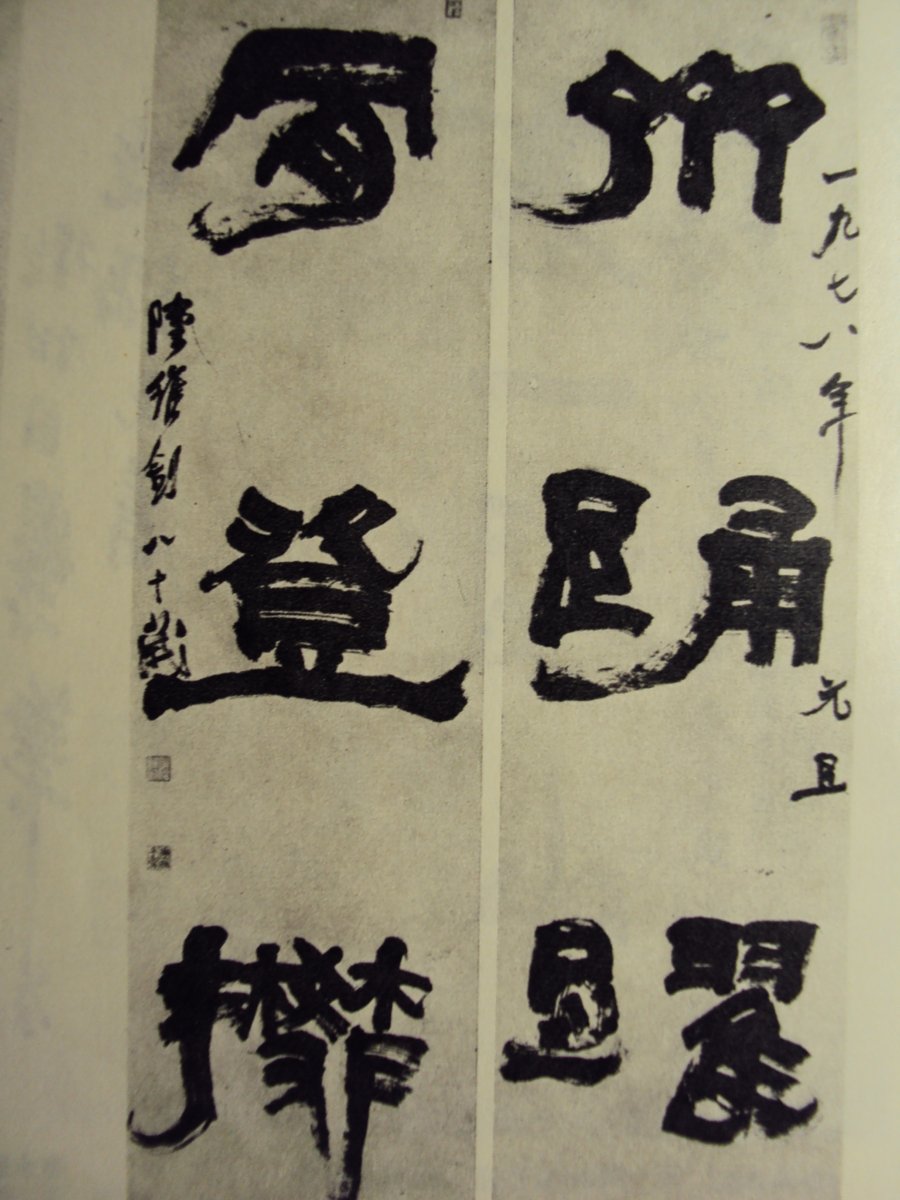 一九七八年元旦
齊踊躍
登攀
陸維釗八十歲